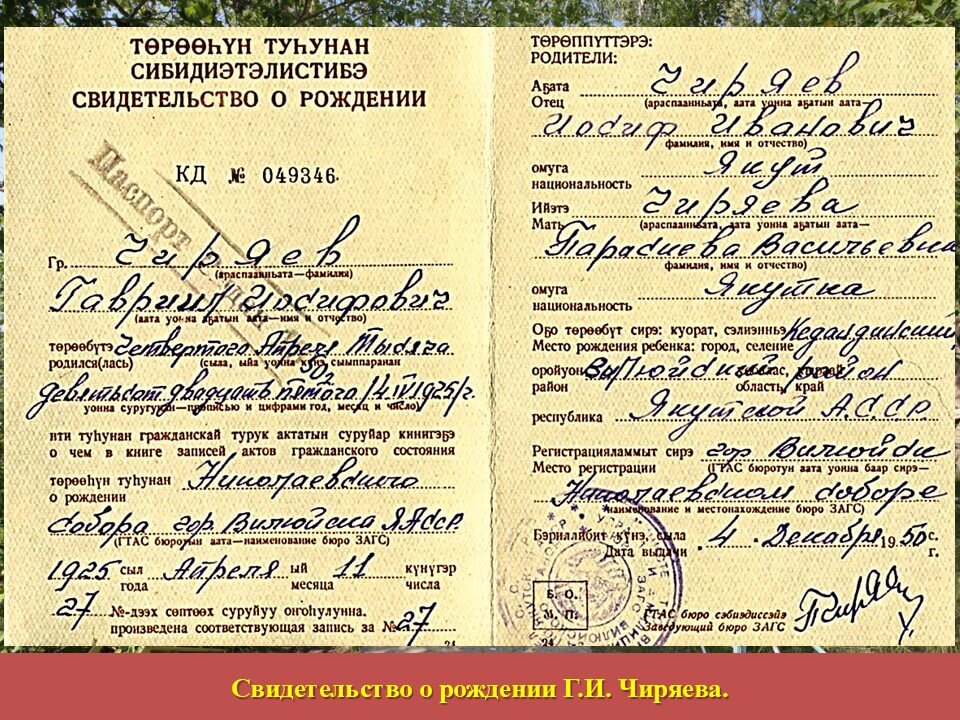 ТӨРӨӨҺҮН ТУҺУНАН
СИБИДИЭТЭЛИСТИБЭ
СВИДЕТЕЛЬСТВО О РОЖДЕНИИ
КД № 049346
Паспорт
Гр. Чиряев
(араспаанньата—фамилия)
Гавриил Иосифович
(аата уонна аҕатын аата—имя и отчество)
төрөөбүтэ четвертого Апреля Тысяча
родился(лась) (сыла, ыйа уонна күнэ, сыыппаранан
девятьсот двадцать пятого /4.IV.1925/г.
уонна суругунан—прописью и цифрами год, месяц и число)
ити туһунан гражданскай турук актатын суруйар кинигэҕэ
о чем в книге записей актов гражданского состояния
төрөөһүн туһунан Николаевского
о рождении
собора гор. Вилюйска ЯАССР
(ГТАС бюротун аата—наименование бюро ЗАГС)
1925 сыл Апреля ый 11 күнүгэр
года месяца числа
27 №-дээх сөптөөх суруйуу оҥоһулунна.
произведена соответствующая запись за № 27
ТӨРӨППҮТТЭРЭ:
РОДИТЕЛИ:
Аҕата Чиряев
Отец (араспаанньата, аата уонна аҕатын аата—
Иосиф Иванович
фамилия, имя и отчество)
омуга Якут
национальность
Ийэтэ Чиряева
Мать (араспаанньата, аата уонна аҕатын аата—
Парасиева Васильевна
фамилия, имя и отчество)
омуга Якутка
национальность
Оҕо төрөөбүт сирэ: куорат, сэлиэнньэ
Место рождения ребенка: город, селение
оройуон Вилюйский район
район область, край
республика Якутской АССР
Регистрацияламмыт сирэ гор. Вилюйск
Место регистрации (ГТАС бюротун аата уонна баар сирэ—
Николаевском соборе
наименование и местонахождение бюро ЗАГС)
Бэриллибит күнэ, сыла 4 Декабря 1950 с.
Дата выдачи г.
Б. О.
М. П.
ГТАС бюро сэбиэдиссэйэ
Заведующий бюро ЗАГС
Свидетельство о рождении Г.И. Чиряева.